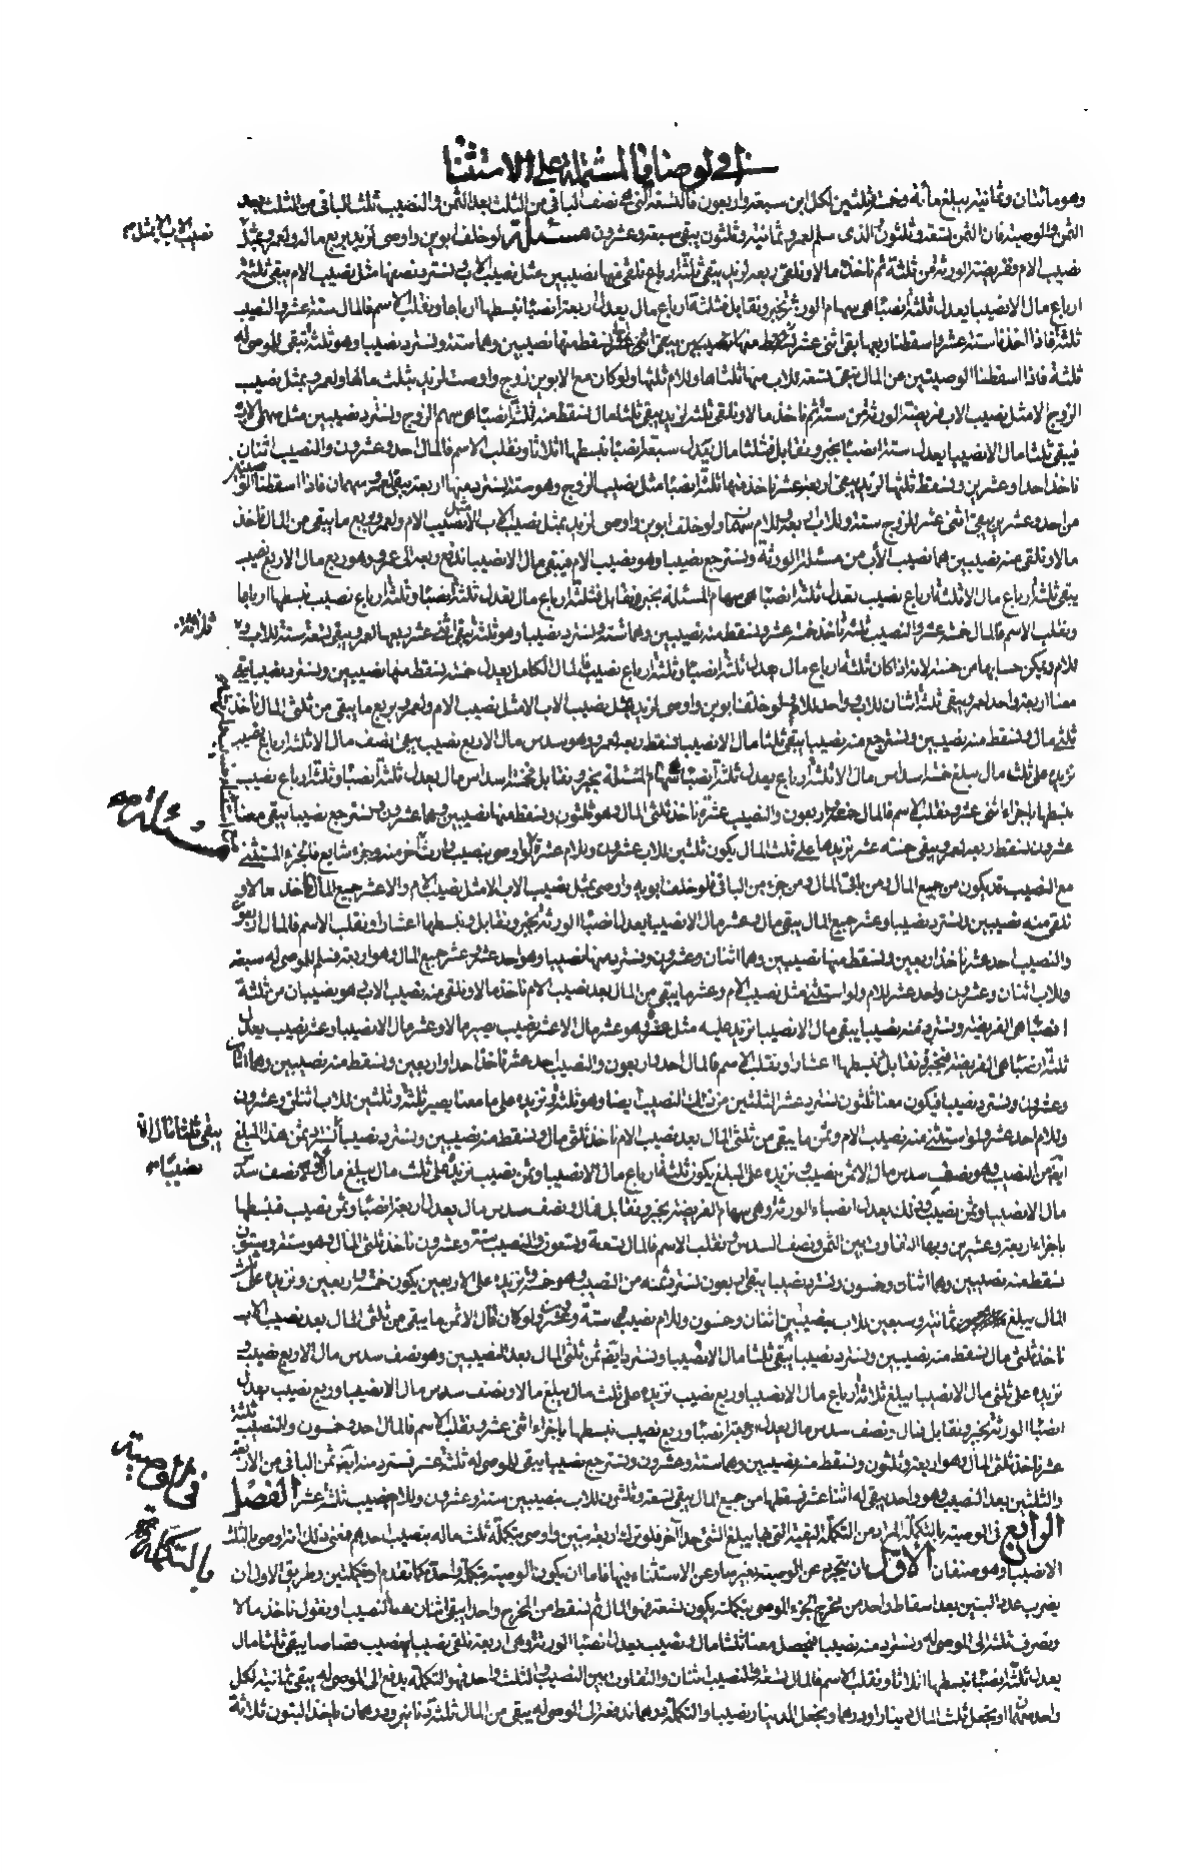 في الوصايا المشتملة على الاستثناء
وهو مائتان وثمانية يبلغ مائة وخمسة وثلثين لكل ابن سبعة واربعون فالتسعة التي هي نصف الباقي من الثلث بعد الثمن والنصيب ثلث الباقي من الثلث بعد
الثمن والوصية فان الثمن تسعة وثلثون الذى سلم لعمرو ثمانية وثلثون يبقى سبعة وعشرون مسئلة لو خلف ابوين واوصى لزيد بربع ماله ولعمرو بمثل
نصيب الاب الا بمثل
نصيب الام وفريضة الورثة من ثلثة ثم ناخذ مالا ونلقى ربعه لزيد يبقى ثلثة ارباع نلقى منها نصيبين مثل نصيب الاب ونسترد نصيبا مثل نصيب الام يبقى ثلثة
ارباع مال الا نصيبا يعدل ثلثة انصباء هي سهام الورثة نجبر ونقابل فثلثة ارباع مال يعدل اربعة انصباء نبسطها ارباعا ونقلب الاسم فالمال ستة عشر والنصيب
ثلثة فاذا اخذنا ستة عشر واسقطنا ربعها بقى اثنى عشر نسقط منها نصيبين وهما ستة ونسترد نصيبا وهو ثلثة تبقى للموصى له
ثلثة فاذا اسقطنا الوصيتين من المال بقى تسعة للاب منها ثلثاها وللام ثلثها ولو كان مع الابوين زوج واوصت لزيد بثلث مالها ولعمرو بمثل نصيب
الزوج الا مثل نصيب الاب فريضة الورثة من ستة ثم ناخذ مالا ونلقى ثلثه لزيد يبقى ثلثا مال نسقط منه ثلثة انصباء هي سهم الزوج ونسترد نصيبين مثل سهمي الاب
فيبقى ثلثا مال الا نصيبا يعدل ستة انصباء نجبر ونقابل فثلثا مال يعدل سبعة انصباء نبسطها اثلاثا ونقلب الاسم فالمال احد وعشرون والنصيب اثنان
ناخذ احدا وعشرين ونسقط ثلثها لزيد يبقى اربعة عشر ناخذ منها ثلثة انصباء مثل نصيب الزوج وهو ستة نسترد منها اربعة يبقى لعمرو سهمان فاذا اسقطنا الوصيتين
من احد وعشرين يبقى اثنى عشر للزوج ستة وللاب اربعة وللام سهمان ولو خلف ابوين واوصى لزيد بمثل نصيب الاب الا مثل نصيب الام ولعمرو بربع ما يبقى من المال ناخذ
مالا ونلقى منه نصيبين هما نصيب الأب من مسئلة الورثة ونسترجع نصيبا وهو نصيب الام فيبقى مال الا نصيبا ندفع ربعه الى عمرو وهو ربع مال الا ربع نصيب
يبقى ثلثة ارباع مال الا ثلثة ارباع نصيب يعدل ثلثة انصباء هي سهام المسئلة نجبر ونقابل فثلثة ارباع مال يعدل ثلثة انصباء وثلثة ارباع نصيب نبسطها ارباعا
ونقلب الاسم فالمال خمسة عشر والنصيب ثلثة ناخذ خمسة عشر ونسقط منه نصيبين وهما ستة ونسترد نصيبا وهو ثلثة يبقى اثنى عشر ربعها لعمرو يبقى تسعة ستة للاب
ثلاثة
للام ويمكن حسابها من خمسة لانه اذا كان ثلثة ارباع مال يعدل ثلثة انصباء وثلثة ارباع نصيب فالمال الكامل يعدل خمسة نسقط منها نصيبين ونسترد نصيبا يبقى
معنا اربعة واحد لعمرو يبقى ثلثة اثنان للاب وواحد للام ولو خلف ابوين واوصى لزيد بمثل نصيب الاب الا مثل نصيب الام ولعمرو بربع ما يبقى من ثلثي المال ناخذ
ثلثي مال ونسقط منه نصيبين ونسترجع منه نصيبا يبقى ثلثا مال الا نصيبا نسقط ربعه لعمرو وهو سدس مال الا ربع نصيب يبقى نصف مال الا ثلثة ارباع نصيب
نزيده على ثلث مال يبلغ خمسة اسداس مال الا ثلثة ارباع يعدل ثلثة انصباء سهام المسئلة نجبر ونقابل فخمسة اسداس مال يعدل ثلثة انصباء وثلثة ارباع نصيب
نبسطها باجزاء اثنى عشر ونقلب الاسم فالمال خمسة واربعون والنصيب عشرة ناخذ ثلثي المال وهو ثلثون ونسقط منها نصيبين وهما عشرون ونسترجع نصيبا يبقى معنا
عشرون نسقط ربعه لعمرو يبقى خمسة عشر نزيدها على ثلث المال يكون ثلثين للاب عشرون وللام عشرة ولو اوصى بنصيب وارث آخر منه جزء شايع فالجزء المستثنى
مسئلة
مع النصيب قد يكون من جميع المال ومن باقي المال ومن جزء من الباقي فلو خلف ابويه واوصى بمثل نصيب الاب الا مثل نصيب الام والا عشر جميع المال ناخذ مالا و
نلقى منه نصيبين نسترد نصيبا وعشر جميع المال يبقى مال وعشر مال الا نصيبا يعدل انصباء الورثة نجبر ونقابل ونبسطها اعشارا ونقلب الاسم فالمال اربعون
والنصيب احد عشر ناخذ اربعين ونسقط منها نصيبين وهما اثنان وعشرون ونسترد منها نصيبا وهو احد عشر وعشر جميع المال وهو اربعة فسلم للموصى له سبعة
وللاب اثنان وعشرون واحد عشر للام ولو استثنى مثل نصيب الام وعشر ما يبقى من المال بعد نصيب الام ناخذ مالا ونلقى منه نصيب الاب وهو نصيبان من ثلثة
انصباء هي الفريضة ونسترد منه نصيبا يبقى مال الا نصيبا نزيد عليه مثل عشره وهو عشر مال الا عشر نصيب يصير مالا وعشر مال الا نصيبا وعشر نصيب يعدل
ثلثة انصباء هي الفريضة فنجبر ونقابل نبسطها اعشارا ونقلب الاسم فالمال احد واربعون والنصيب احد عشر ناخذ احدا واربعين ونسقط منه نصيبين وهما اثنان
وعشرون ونسترد نصيبا فيكون معنا ثلثون نسترد عشر الثلثين من ذلك النصيب ايضا وهو ثلثة ونزيده على ما معنا يصير ثلثة وثلثين للاب اثنان وعشرون
وللام احد عشر ولو استثنى منه نصيب الام وثمن ما يبقى من ثلثي المال بعد نصيب الام ناخذ ثلثي مال ونسقط منه نصيبين ونسترد نصيبا
يبقى ثلثا مال الا
نصيبا
مال الا نصيبا وثمن نصيب وذلك يعدل انصباء الورثة وهي سهام الفريضة نجبر ونقابل فمال ونصف سدس مال يعدل اربعة انصباء وثمن نصيب فنبسطها
باجزاء اربعة وعشرين وبها التفاوت بين الثمن ونصف السدس ونقلب الاسم فالمال تسعة وتسعون والنصيب ستة وعشرون ناخذ ثلثي المال وهو ستة وستون
نسقط منه نصيبين وهما اثنان وخمسون ونسترد نصيبا يبقى اربعون نسترد ثمنه من النصيب وهو خمسة ونزيده على الاربعين يكون خمسة واربعين ونزيده على ثلث
المال يبلغ ثمانية وسبعين للاب نصيبين اثنان وخمسون وللام نصيب هي ستة وعشرون ولو كان قال الا ثمن ما يبقى من ثلثي المال بعد نصيب الاب
ناخذ ثلثي مال نسقط منه نصيبين ونسترد نصيبا يبقى ثلثا مال الا نصيبا ونسترد ايضا ثمن ثلثي المال بعد النصيبين وهو نصف سدس مال الا ربع نصيب
نزيده على ثلثي مال الا نصيبا يبلغ ثلاثة ارباع مال الا نصيبا وربع نصيب نزيده على ثلث مال يبلغ مالا ونصف سدس مال الا نصيبا وربع نصيب يعدل
انصباء الورثة نجبر ونقابل فمال ونصف سدس مال يعدل اربعة انصباء وربع نصيب نبسطها باجزاء اثنى عشر ونقلب الاسم فالمال احد وخمسون والنصيب ثلثة
عشر ناخذ ثلثي المال وهو اربعة وثلثون ونسقط منه نصيبين وهما ستة وعشرون ونسترجع نصيبا يبقى للموصى له ثلثة عشر نسترد منه ايضا ثمن الباقي من الاربعة
والثلثين بعد النصيب وهو واحد يبقى له اثنا عشر نسقطها من جميع المال يبقى تسعة وثلثون للاب نصيبين ستة وعشرون وللام نصيب ثلثة عشر الفصل
الرابع في الوصية بالتكملة المراد من التكملة البقية التي بها يبلغ الشئ حدا آخر فلو ترك اربعة بنين واوصى بتكملة ثلث ماله بنصيب احدهم فمعنى ذلك انه اوصى بالثلث
في الوصية
بالتكملة
الا نصيبا وهو صنفان الاول ان يتجرد عن الوصية بغيرها وعن الاستثناء فيها فاما ان يكون الوصية بتكملة واحدة كما تقدم او بتكملتين وطريق الاول ان
يضرب عدد البنين بعد اسقاط واحد من مخرج الجزء الموصى بتكملته يكون تسعة فهو المال ثم نسقط من المخرج واحدا يبقى اثنان هما النصيب او نقول ناخذ مالا
ونصرف ثلثه الى الموصى له ونسترد منه نصيبا فيحصل معنا ثلثا مال ونصيب يعدل انصباء الورثة وهي اربعة نلقى نصيبا بنصيب قصاصا يبقى ثلثا مال
يعدل ثلثة انصباء نبسطها اثلاثا ونقلب الاسم فالمال تسعة والنصيب اثنان والتفاوت بين النصيب والثلث واحد فهو التكملة يدفع الى الموصى له يبقى ثمانية لكل
واحد سهمان او نجعل ثلث المال دينارا ودرهما ونجعل الدينار نصيبا والتكملة درهما ندفعه الى الموصى له يبقى من المال ثلثة دنانير ودرهمان ياخذ البنون ثلاثة